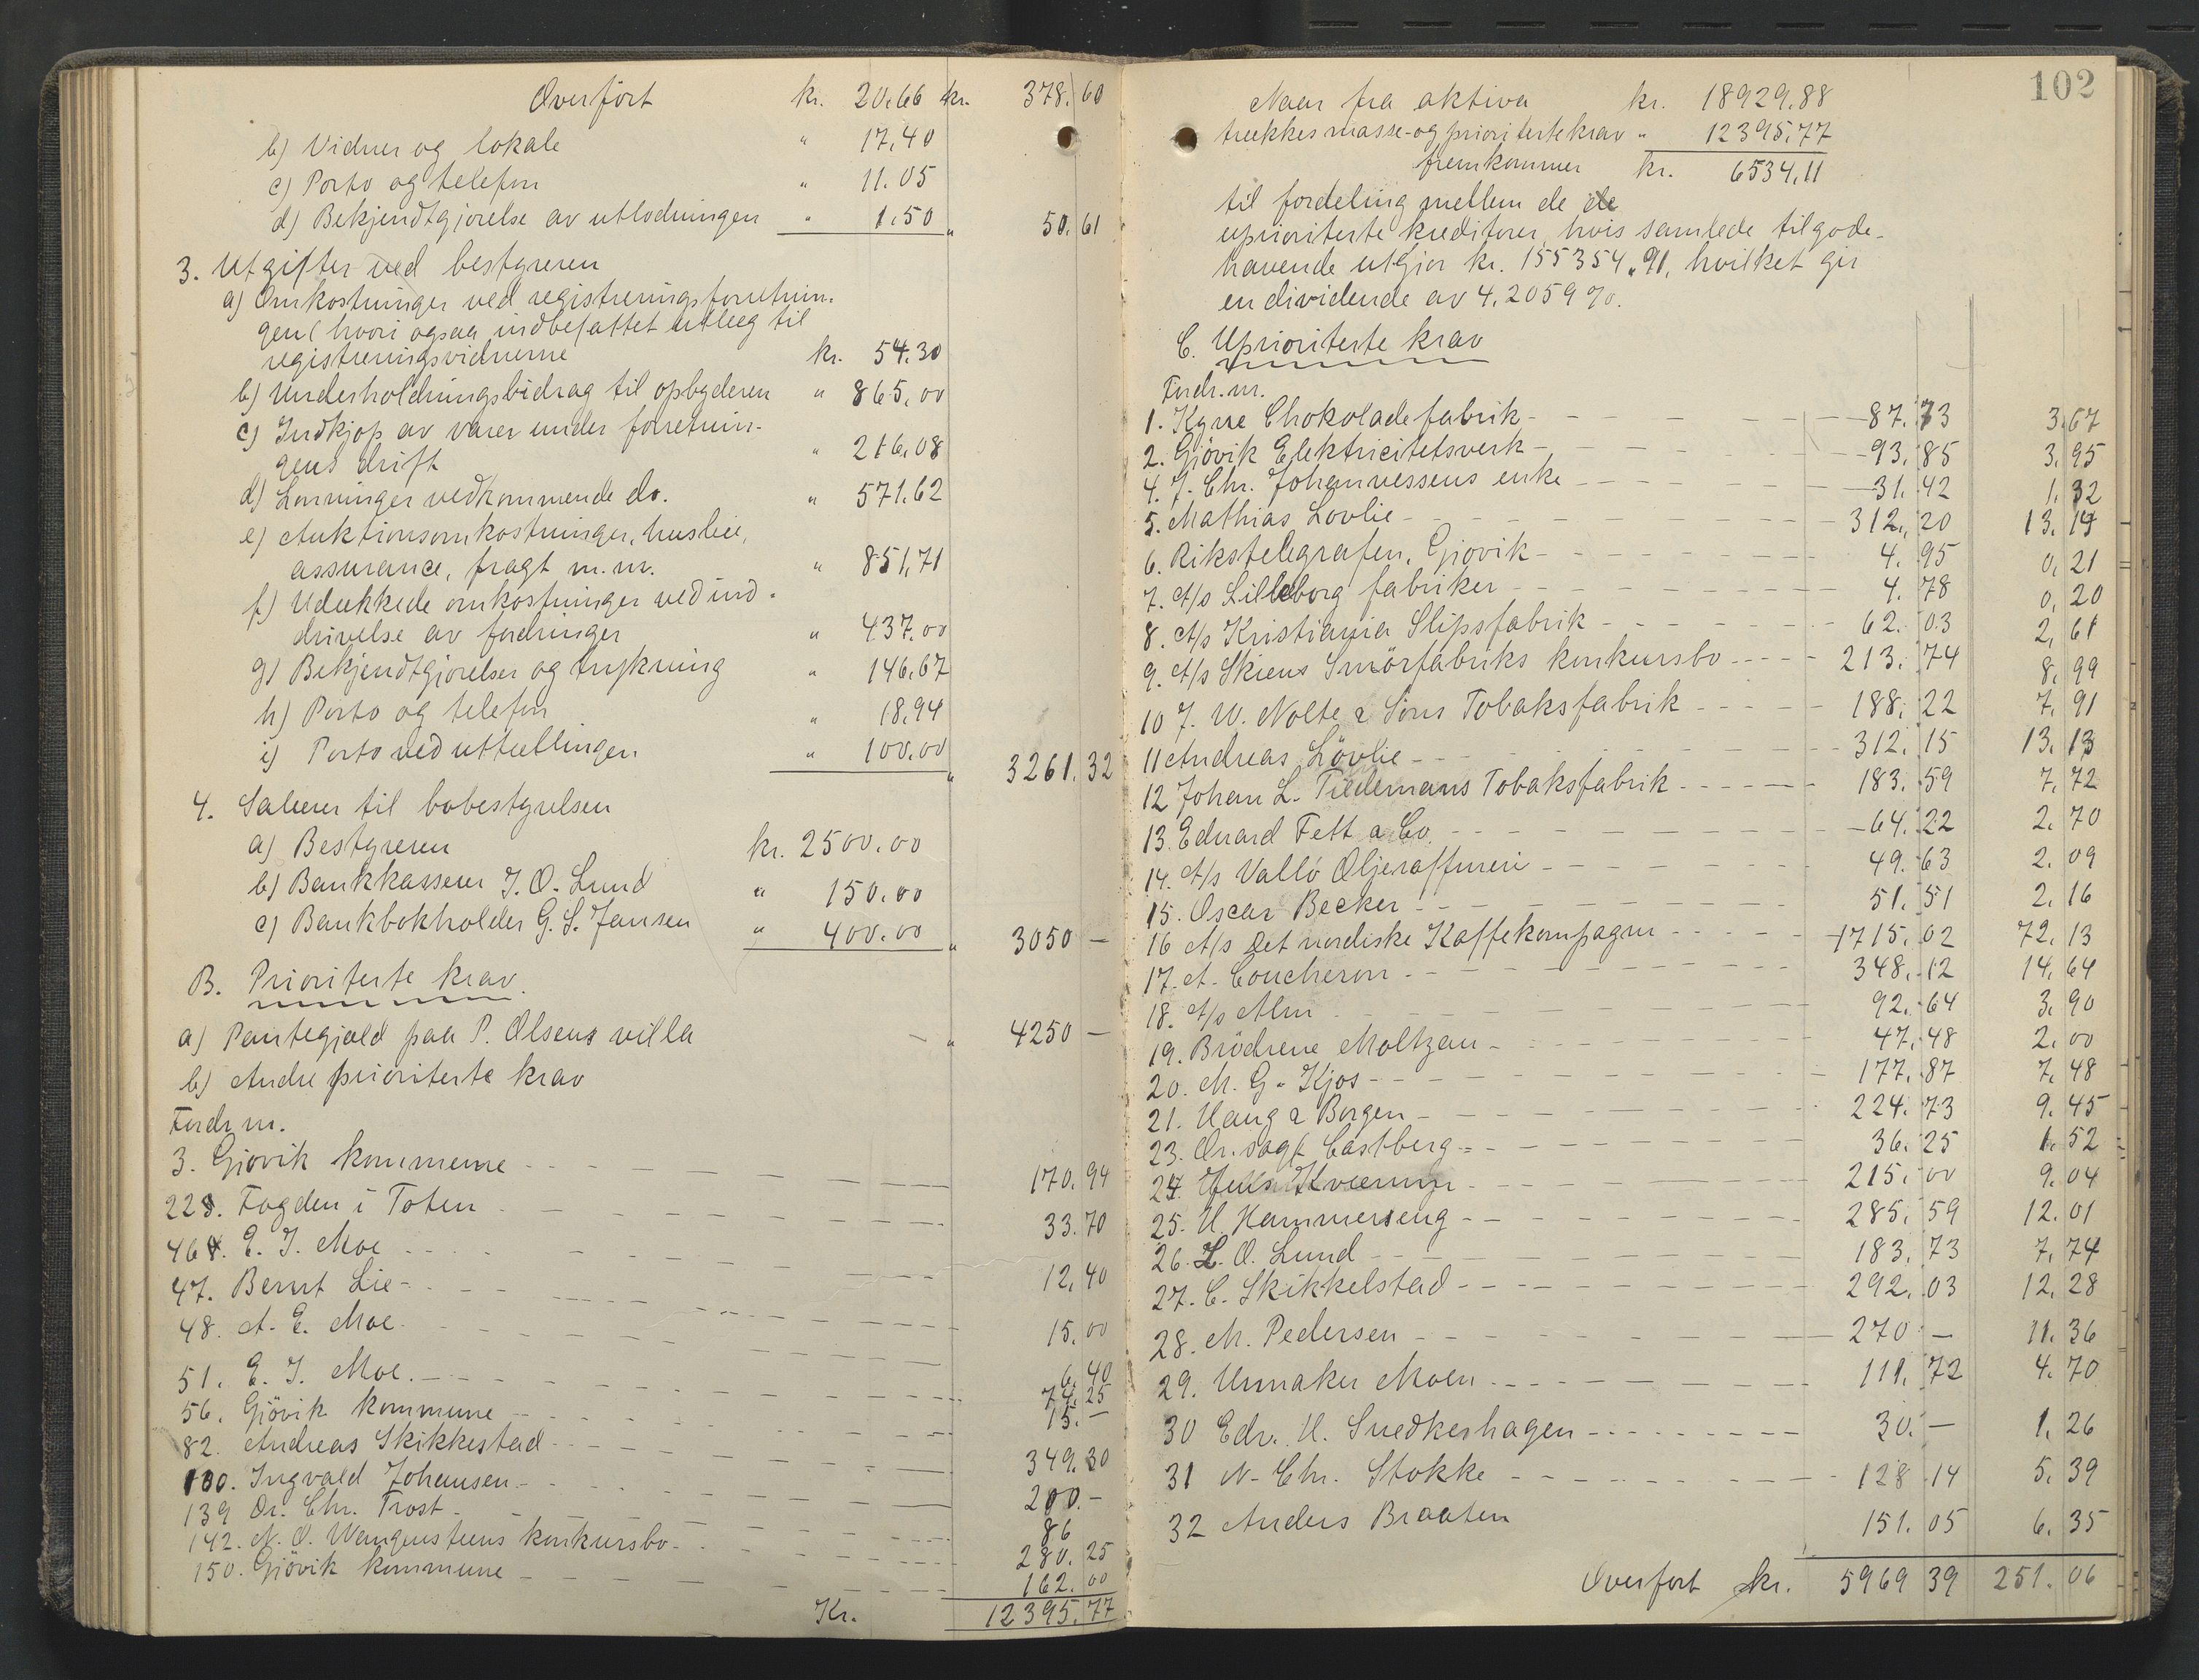 Overført kr. 20.66 kr. 378.60
b) Vidner og lokale " 17,40
c) Porto og telefon " 11.05
d) Bekjendtgjørelse av utlodningen " 1.50 " 50.61
3. Utgifter ved bestyreren
a) Omkostninger ved registreringsforretnin-
gen (hvori ogsaa indbefattet utlæg til
registreringsvidnerne kr. 54.30
b) Underholdningsbidrag til opbyderen " 865,00
c) Indkjøp av varer under forretnin-
gens drift " 216,08
d) Lønninger vedkommende do. " 571.62
e) Auktionsomkostninger, husleie,
assurance, fragt m.m. " 851,71
f) Udækkede omkostninger ved ind-
drivelse av fordringer " 437.00
g) Bekjendtgjørelser og trykning " 146.67
h) Porto og telefon " 18.94
i) Porto ved uttællingen " 100.00 " 3261.32
4. Salærer til bobestyrelsen
a) Bestyreren kr. 2500.00
b) Bankkasserer J. O. Lund " 150.00
c) Bankbokholder G. S. Jansen " 400.00 " 3050 —
B. Prioriterte krav.
a) Pantegjæld paa P. Olsens villa - " 4250 —
b) Andre prioriterte krav
Fordr. nr.
3. Gjøvik kommune 170.94
22. Fogden i Toten 33.70
46. E. J. Moe 12.40
47. Bernt Lie 15.00
48. A. E. Moe 6.40
51. E. J. Moe. 74.25
56. Gjövik kommune 15.—
82. Andreas Skikkestad 349.30
100. Ingvald Johansen 200.—
139 Dr. Chr. Trost 86
142. N. O. Wangensteens konkursbo 280.25
150. Gjövik kommune 162.00
Kr. 12395.77
102
Naar fra aktiva kr. 18929.88
trækkes masse-og prioritertekrav " 12395.77
fremkommer kr. 6534.11
til fordeling mellem de de
uprioriterte kreditorer, hvis samlede tilgode-
havende utgjør kr. 155354.91, hvilket gir
en dividende av 4,2059 %.
C. Uprioriterte krav
Fordr. nr.
1. Kyrre Chokoladefabrik 87.73 3.67
2. Gjövik Elektricitetsverk 93.85 3.95
4. J. Chr. Johannessens enke 31.42 1.32
5. Mathias Lovlie 312.20 13.14
6. Rikstelegrafen, Gjøvik 4.95 0.21
7. A/s Lilleborg fabriker 4.78 0.20
8. A/s Kristiania Slipsfabrik 62.03 2.61
9. A/s Skiens Smörfabriks konkursbo 213.74 8.99
10 J. W. Nolte & Söns Tobaksfabrik 188.22 7.91
11 Andreas Lövlie 312.15 13.13
12 Johan L. Tiedemans Tobaksfabrik 183.59 7.72
13. Eduard Fett & Co. 64.22 2.70
14. A/s Vallö Oljeraffineri 49.63 2.09
15. Oscar Becker 51.51 2.16
16 A/s Det nordiske Kaffekompagni 1715.02 72.13
17. A. Coucheron 348.12 14.64
18. A/s Alm 92.64 3.90
19. Brödrene Moltzau 47.48 2.00
20. M. G. Kjos 177.87 7.48
21. Haug & Borgen 224.73 9.45
23. Or. sagf. Castberg 36.25 1.52
24. Jens Kværnum 215.00 9.04
25. H. Hammerseng 285.59 12.01
26. L. O. Lund 183.73 7.74
27. C. Skikkelstad 292.03 12.28
28. M. Pedersen 270 — 11.36
29. Urmaker Moen 111.72 4.70
30 Edv. H. Snedkerhagen 30.— 1.26
31 N. Chr. Stokke 128.14 5.39
32 Anders Braaten 151.05 6.35
Overført kr. 5969 39 251.06